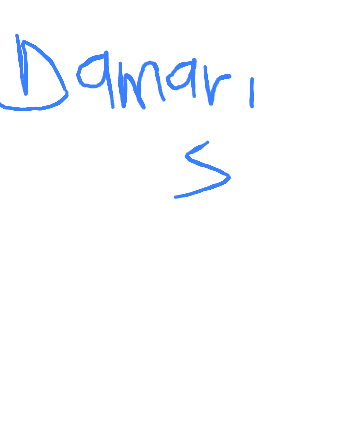 Damari
s